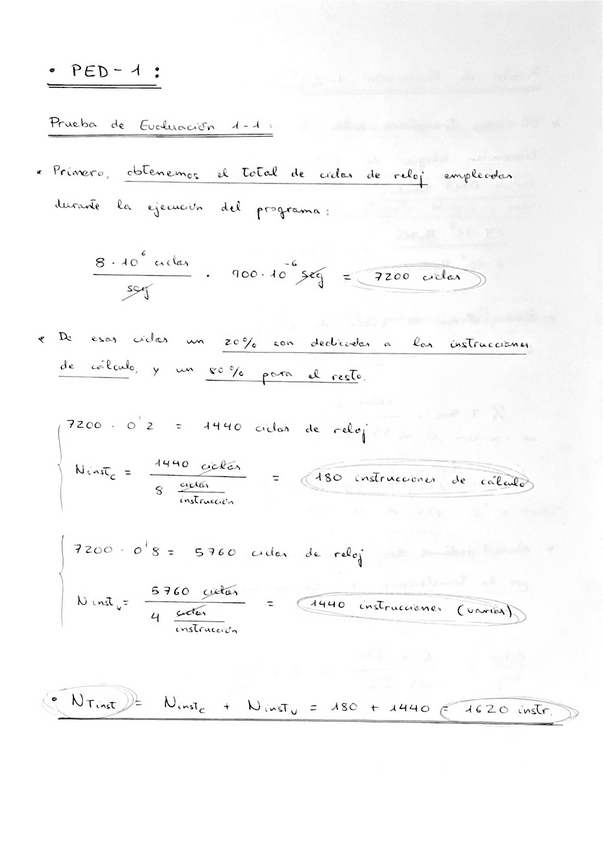 • PED-1:
Prueba de Evaluación 1-1:
• Primero, obtenemos el total de ciclos de reloj empleados
durante la ejecución del programa:
8 · 10⁶ ciclos / seg · 900 · 10⁻⁶ seg = 7200 ciclos
• De esos ciclos un 20% son dedicados a las instrucciones
de cálculo, y un 80% para el resto.
7200 · 0'2 = 1440 ciclos de reloj
N inst_c = 1440 ciclos / 8 ciclos/instrucción = 180 instrucciones de cálculo
7200 · 0'8 = 5760 ciclos de reloj
N inst_v = 5760 ciclos / 4 ciclos/instrucción = 1440 instrucciones (varias)
• N Tinst = N inst_c + N inst_v = 180 + 1440 = 1620 instr.